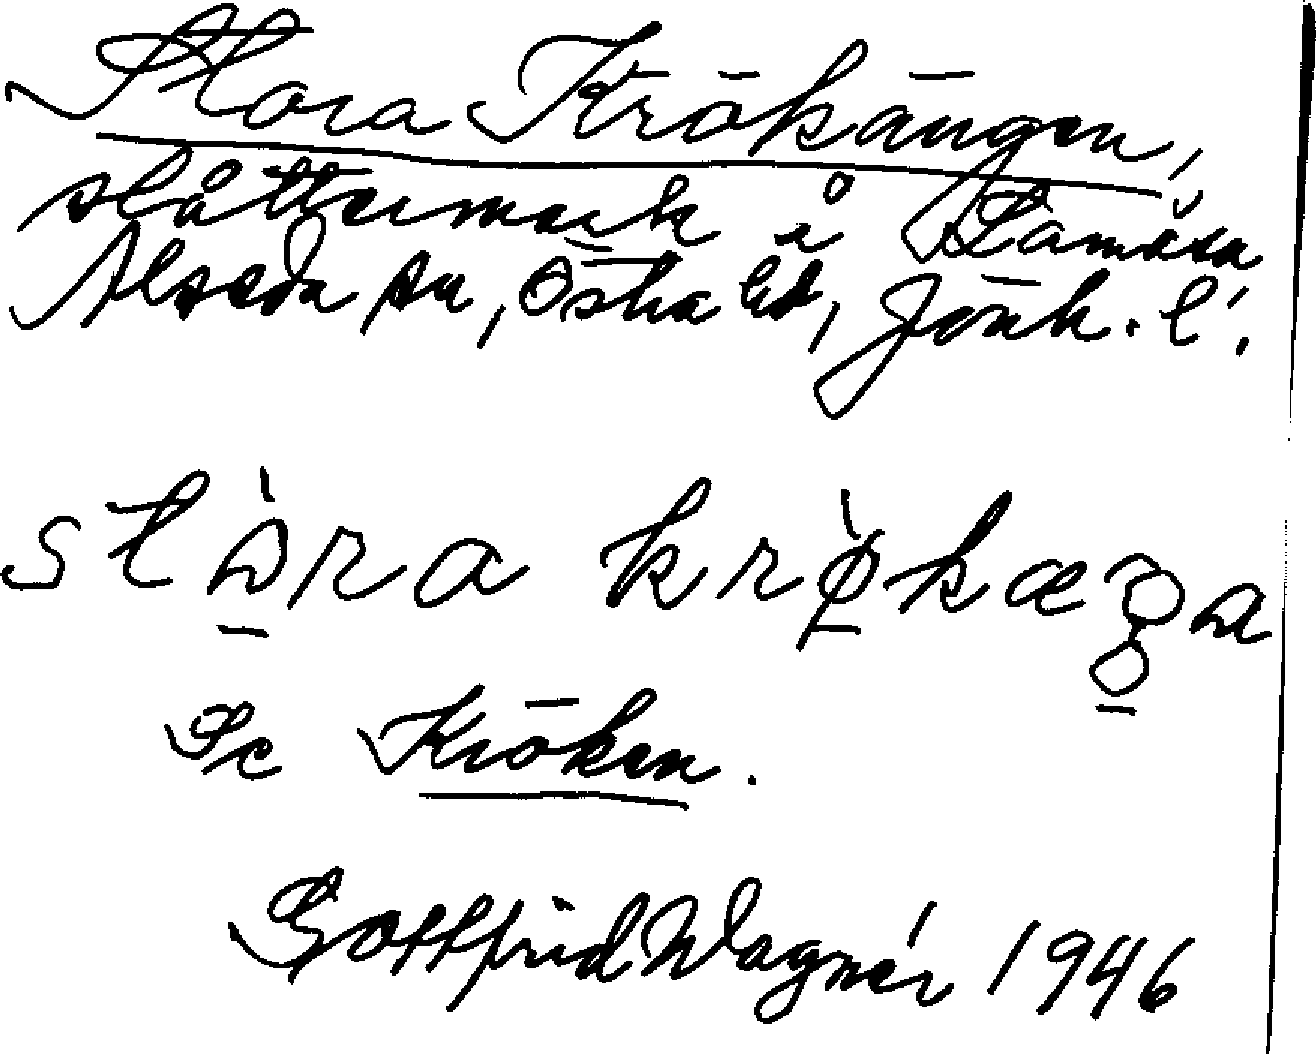 Stora Krökängen,
slåttermark i Lamåsa
Alseda sn, Östra hd, Jönk. l.
stòra krø̀kæŋa
Se Kröken.
Gottfrid Wagnér 1946